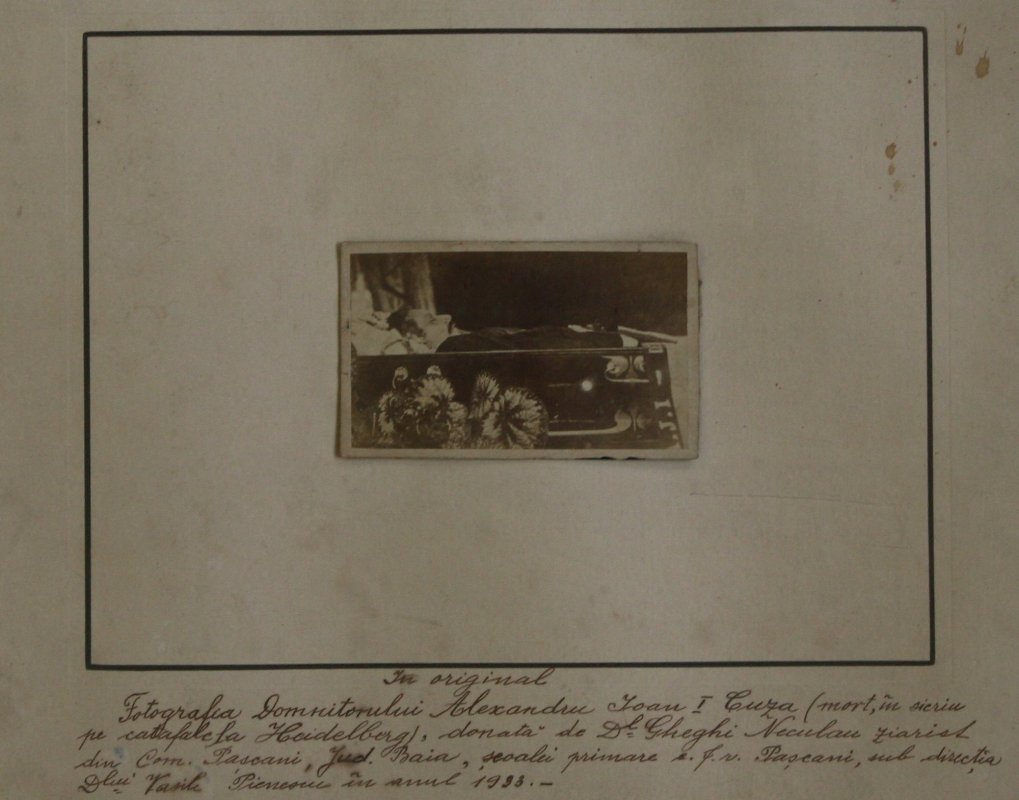 In original
Fotografia Domnitorului Alexandru Ioan I Cuza (mort, în sicriu
pe catafalc la Heidelberg), donată de Dl Gheghi Neculau ziarist
din Com. Pașcani, Jud. Baia, școalei primare c. f. r. Pașcani, sub direcția
Dlui Vasile în anul 1933.-